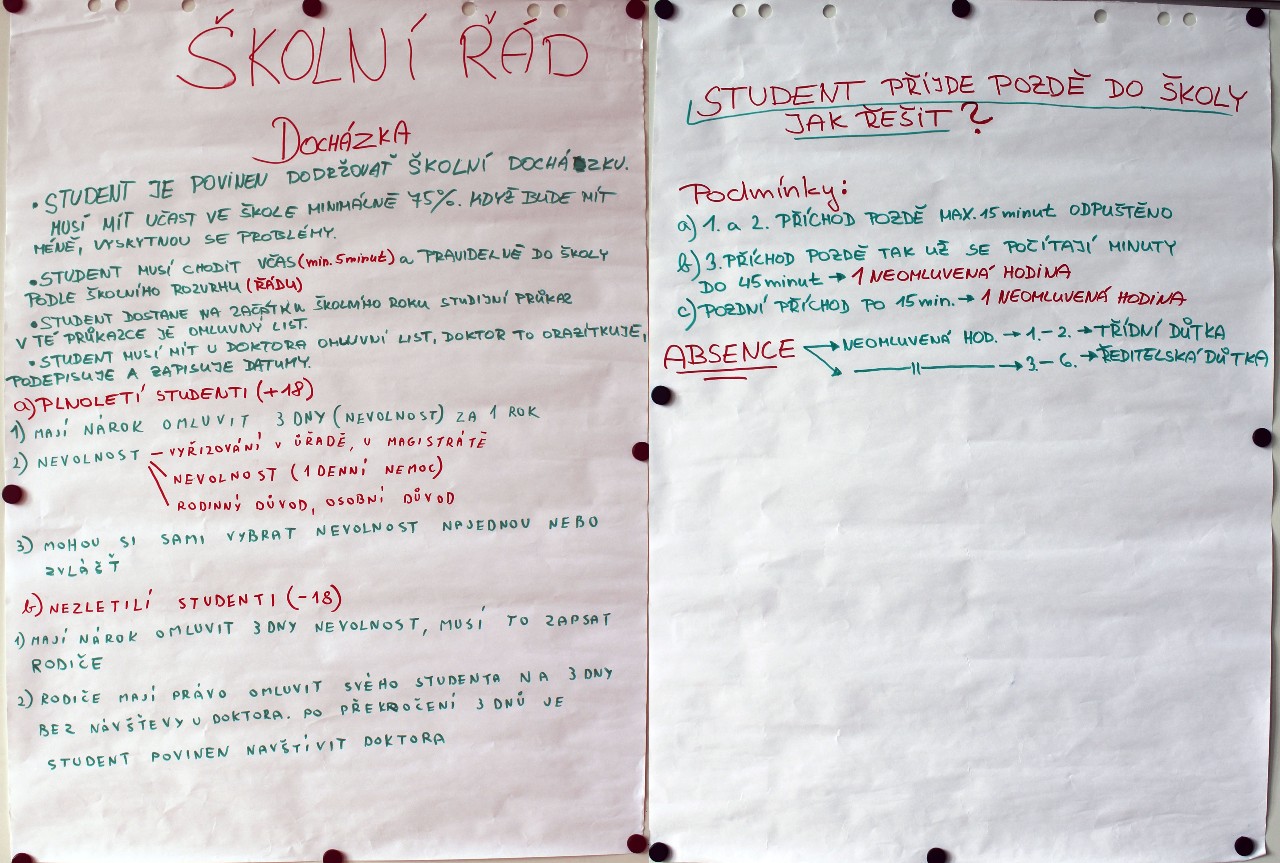 ŠKOLNÍ ŘÁD
DOCHÁZKA
• STUDENT JE POVINEN DODRŽOVAŤ ŠKOLNÍ DOCHÁZKU.
MUSÍ MÍT UČAST VE ŠKOLE MINIMÁLNĚ 75%. KDYŽ BUDE MÍT
MÉNĚ, VYSKYTNOU SE PROBLÉMY.
• STUDENT MUSÍ CHODIT VČAS (min. 5 minut) a PRAVIDELNĚ DO ŠKOLY
PODLE ŠKOLNÍHO ROZVRHU (ŘÁDU)
• STUDENT DOSTANE NA ZAČÁTKU ŠKOLNÍHO ROKU STUDIJNÍ PRŮKAZ
V TÉ PRŮKAZCE JE OMLUVNÝ LIST.
• STUDENT MUSÍ MÍT U DOKTORA OMLUVNÍ LIST, DOKTOR TO ORAZÍTKUJE,
PODEPISUJE A ZAPISUJE DATUMY.
a) PLNOLETÍ STUDENTI (+18)
1) MAJÍ NÁROK OMLUVIT 3 DNY (NEVOLNOST) ZA 1 ROK
2) NEVOLNOST – VYŘIZOVÁNÍ V ÚŘADĚ, U MAGISTRÁTĚ
NEVOLNOST (1 DENNÍ NEMOC)
RODINNÝ DŮVOD, OSOBNÍ DŮVOD
3) MOHOU SI SAMI VYBRAT NEVOLNOST NAJEDNOU NEBO
ZVLÁŠŤ
b) NEZLETILÍ STUDENTI (-18)
1) MAJÍ NÁROK OMLUVIT 3 DNY NEVOLNOST, MUSÍ TO ZAPSAT
RODIČE
2) RODIČE MAJÍ PRÁVO OMLUVIT SVÉHO STUDENTA NA 3 DNY
BEZ NÁVŠTEVY U DOKTORA. PO PŘEKROČENÍ 3 DNŮ JE
STUDENT POVINEN NAVŠTÍVIT DOKTORA
STUDENT PŘÍJDE POZDĚ DO ŠKOLY
JAK ŘEŠIT?
Podmínky:
a) 1. a 2. PŘÍCHOD POZDĚ MAX. 15 minut ODPUŠTĚNO
b) 3. PŘÍCHOD POZDĚ TAK UŽ SE POČÍTAJÍ MINUTY
DO 45 minut → 1 NEOMLUVENÁ HODINA
c) POZDNÍ PŘÍCHOD PO 15 min. → 1 NEOMLUVENÁ HODINA
ABSENCE → NEOMLUVENÁ HOD. → 1. – 2. → TŘÍDNÍ DŮTKA
—— II ——→ 3. – 6. → ŘEDITELSKÁ DŮTKA